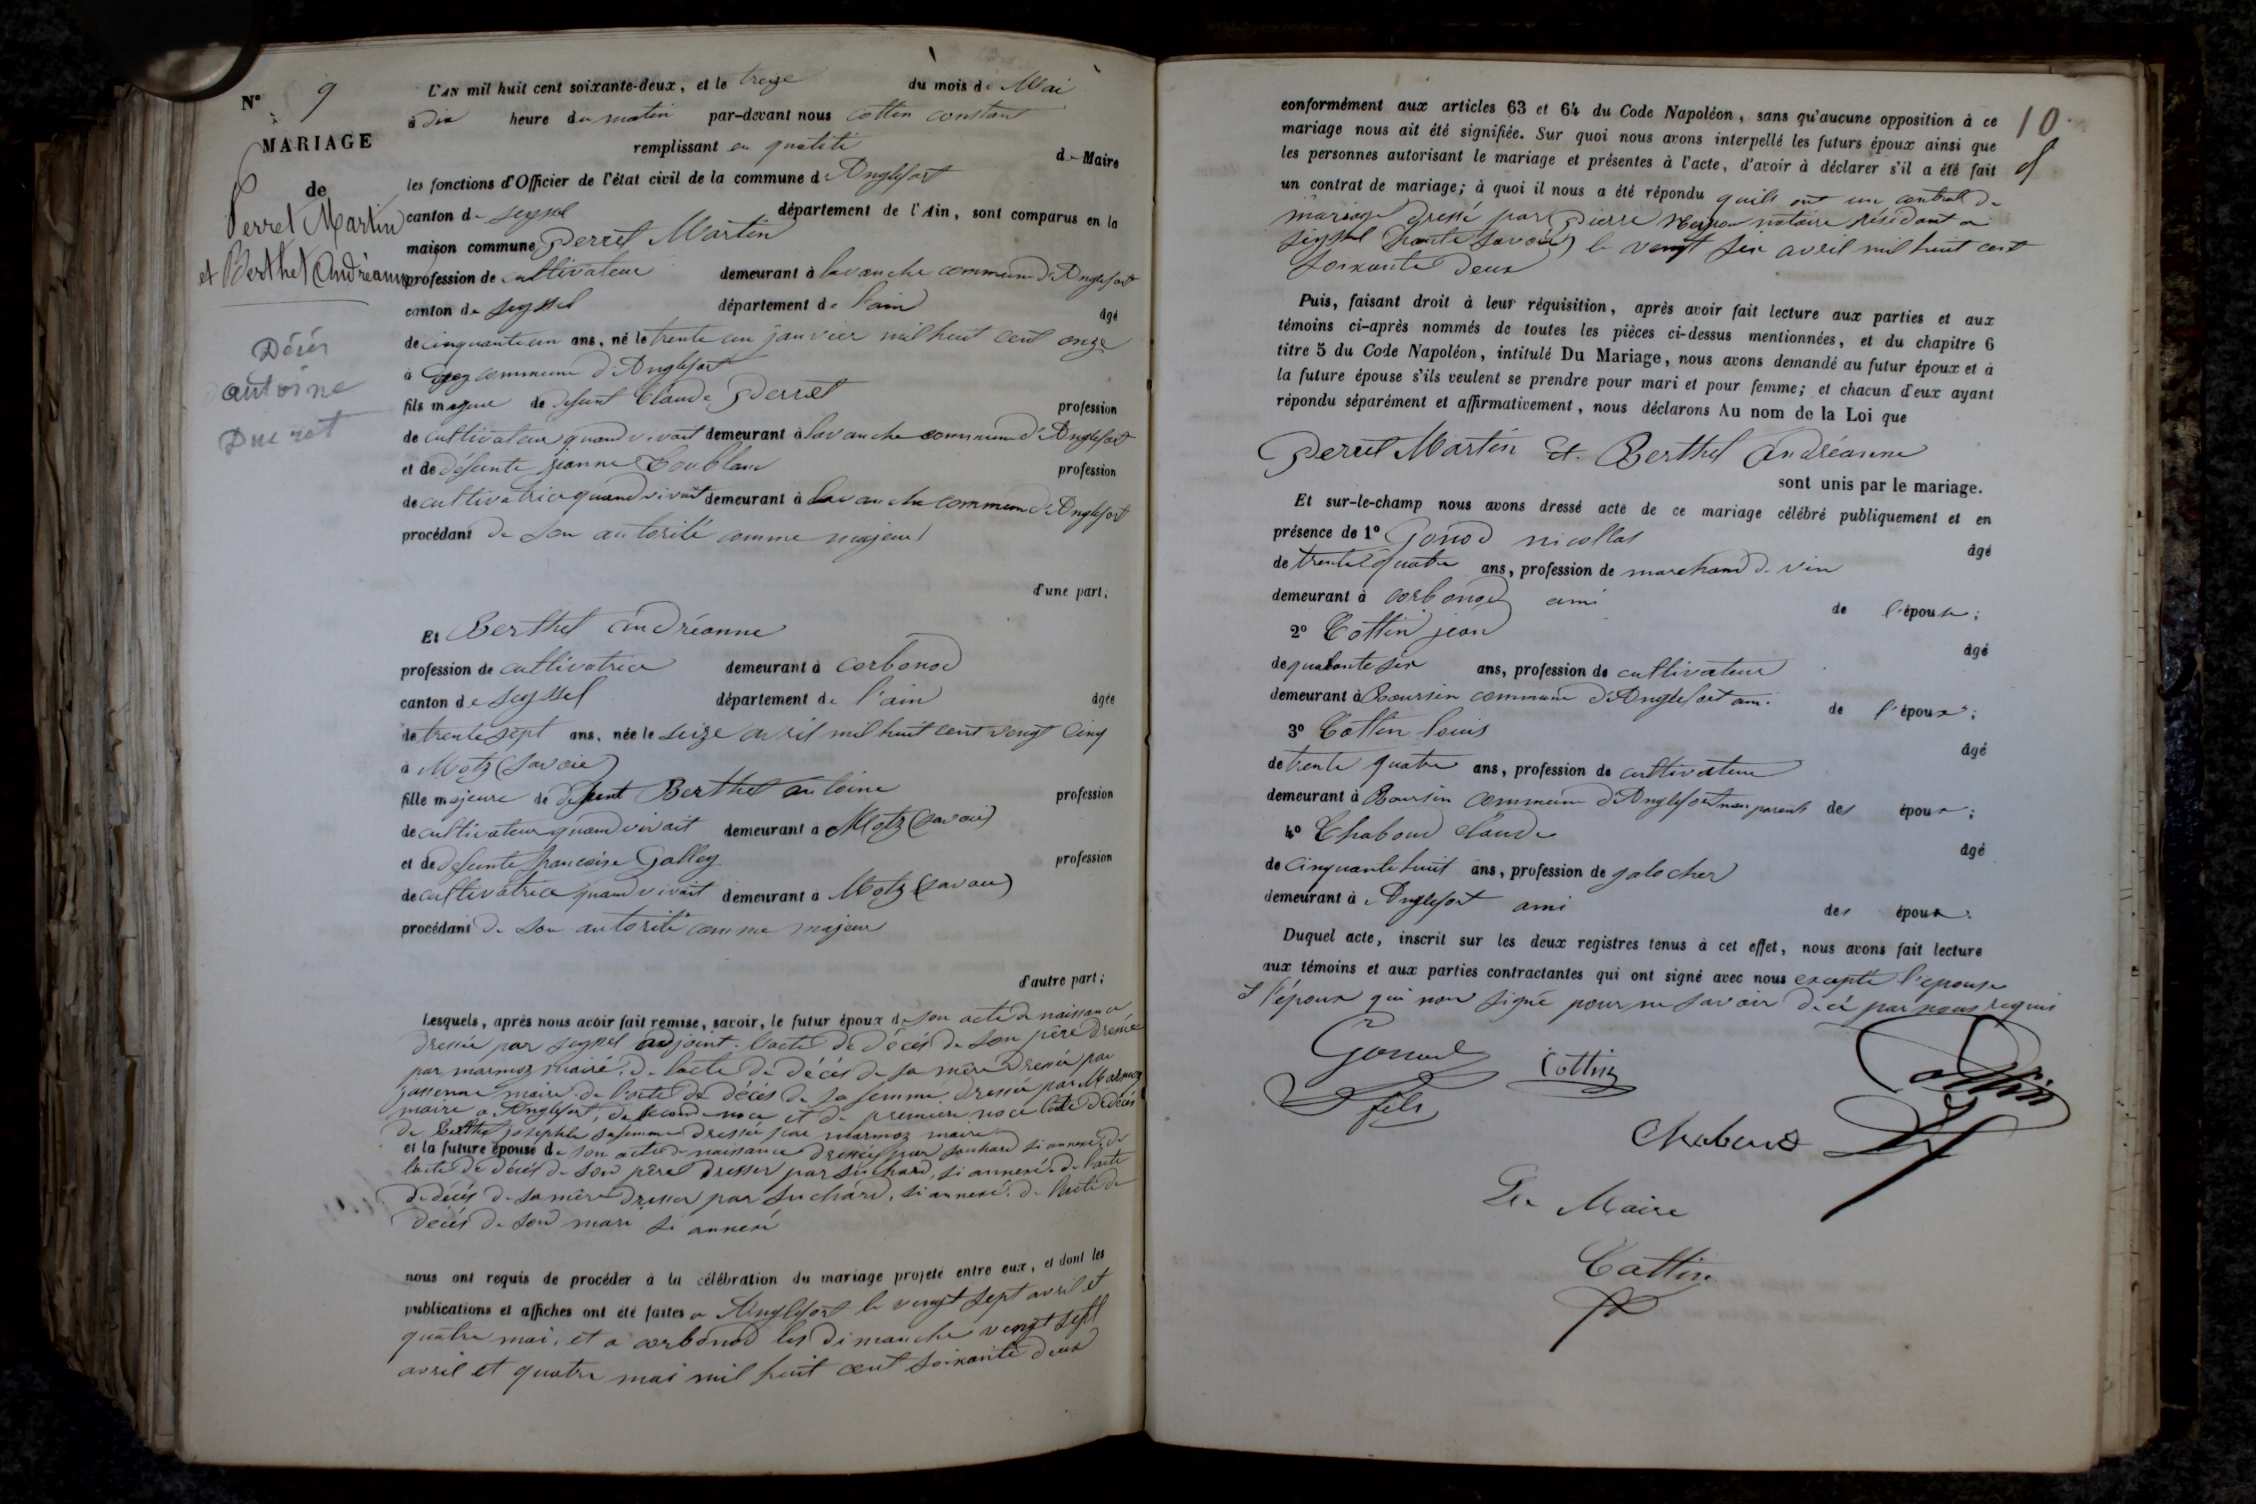 N° 9
MARIAGE
de
Perret Martin
et Berthet Andréanne
Décès
antoine
Ducret
L'AN mil huit cent soixante-deux, et le treize du mois de Mai
à dix heure du matin par-devant nous Cottin constant
remplissant en qualité de Maire
les fonctions d'Officier de l'état civil de la commune d'Anglefort
canton de seyssel département de l'Ain, sont comparus en la
maison commune Perret Martin
profession de cultivateur demeurant à lavanche commune d'Anglefort
canton de seyssel département de l'ain âgé
de cinquante un ans, né le trente un janvier mil huit cent onze
à commune d'Anglefort
fils majeur de defunt Claude Perret profession
de cultivateur quand vivait demeurant à lavanche commune d'Anglefort
et de défunte jeanne Coublanc profession
de cultivatrice quand vivait demeurant à Lavanche commune d'Anglefort
procédant de son autorité comme majeur
d'une part;
Et Berthet andréanne
profession de cultivatrice demeurant à corbonod
canton de seyssel département de l'ain âgée
de trente sept ans, née le seize avril mil huit cent vengt cinq
à Motz (savoie)
fille majeure de defunt Berthet antoine profession
de cultivateur quand vivait demeurant à Motz (savoie)
et de defunte francoise Galley profession
de cultivatrice quand vivait demeurant à Motz (savoie)
procédant de son autorité comme majeur
d'autre part;
Lesquels, après nous avoir fait remise, savoir, le futur époux de son acte de naissance
dressée par seyssel adjoint. l'acte de décés de son père dressée
par marmoz maire. de lacte de décés de sa mère dressée par
maire. de l'acte de décés de sa femme dressée par Marmoz
maire a Anglefort, de seconde noce et de première noce l'acte de décés
de Berthet josephte sa femme dressée par marmoz maire
et la future épouse de son acte de naissance dressée par suchard si annexé. de
l'acte de décés de son père dresser par suchard, si annexé. de l'acte
de décés de sa mère dresser par suchard, si annexé. de l'acte de
décés de son mari si annexé
nous ont requis de procéder à la célébration du mariage projeté entre eux, et dont les
publications et affiches ont été faites a Anglefort le vengt sept avril et
quatre mai, et a corbonod les dimanche vengt sept
avril et quatre mai mil huit cent soixante deux
10
conformément aux articles 63 et 64 du Code Napoléon, sans qu'aucune opposition à ce
mariage nous ait été signifiée. Sur quoi nous avons interpellé les futurs époux ainsi que
les personnes autorisant le mariage et présentes à l'acte, d'avoir à déclarer s'il a été fait
un contrat de mariage; à quoi il nous a été répondu quils ont un contrat de
mariage dressé par pierre notaire résidant a
seyssel (haute savoie) le vengt six avril mil huit cent
soixante deux
Puis, faisant droit à leur réquisition, après avoir fait lecture aux parties et aux
témoins ci-après nommés de toutes les pièces ci-dessus mentionnées, et du chapitre 6
titre 5 du Code Napoléon, intitulé Du Mariage, nous avons demandé au futur époux et à
la future épouse s'ils veulent se prendre pour mari et pour femme; et chacun d'eux ayant
répondu séparément et affirmativement, nous déclarons Au nom de la Loi que
Perret Martin et Berthet Andréanne
sont unis par le mariage.
Et sur-le-champ nous avons dressé acte de ce mariage célébré publiquement et en
présence de 1° Gonod nicollas âgé
de trente quatre ans, profession de marchand de vin
demeurant à corbonod ami de l'épouse;
2° Cottin jean âgé
de quarante six ans, profession de cultivateur
demeurant à Boursin commune d'Anglefort ami de l'époux;
3° Cottin louis âgé
de trente quatre ans, profession de cultivateur
demeurant à Boursin commune d'Anglefort non parent des époux;
4° Chaboud claude âgé
de cinquante huit ans, profession de galocher
demeurant à Anglefort ami des époux.
Duquel acte, inscrit sur les deux registres tenus à cet effet, nous avons fait lecture
aux témoins et aux parties contractantes qui ont signé avec nous excepté l'epouse
et l'époux qui non signé pour ne savoir de cé par nous requis
Gonod
fils
Cottin
Cottin
Chaboud
Le Maire
Cottin